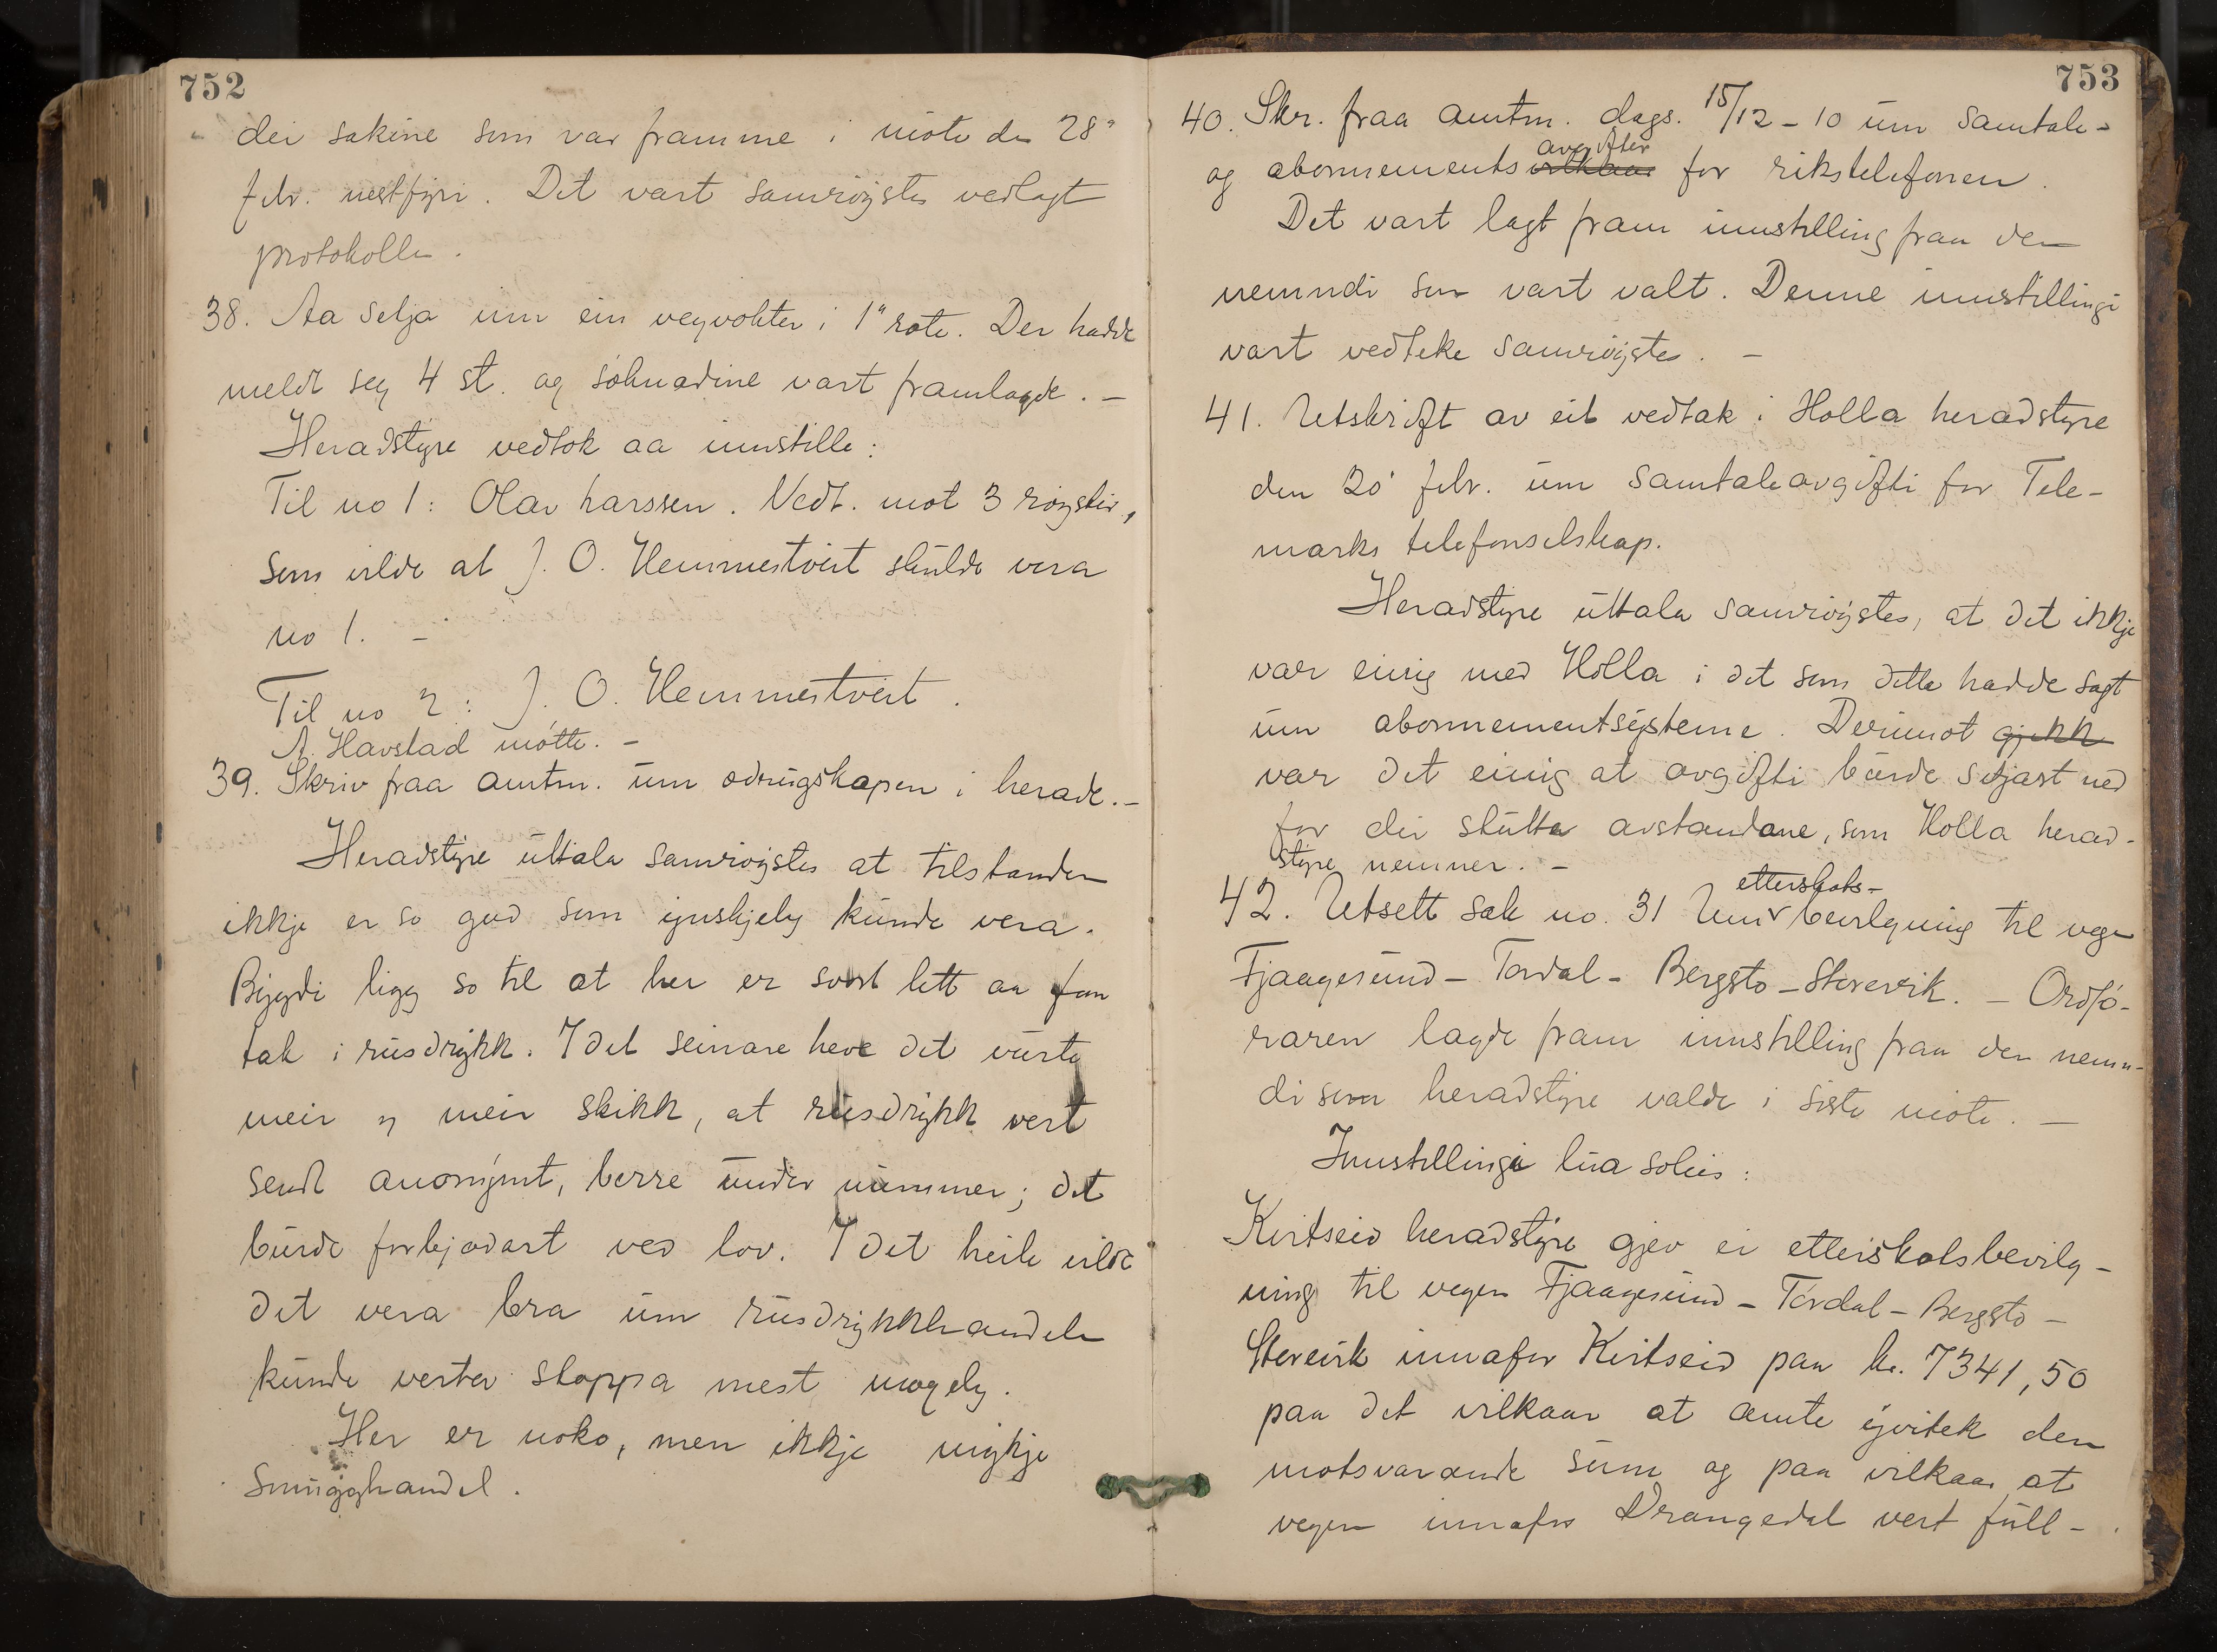 752
dei sakine som var framme i møte den 28'
febr. nestfyri. Det vart samrøystes vedlagt
protokollen.
38. Aa setja um ein vegvokter i 1" rote. Der hadde
meldt seg 4 st. og søknadine vart framlagde. -
Heradstyre vedtok aa innstille:
Til no 1: Olav Larssen. Vedt. mot 3 røyster,
som vilde at J. O. Hemmestveit skulde vera
no 1. -
Til no 2: J. O. Hemmestveit.
A. Havstad møtte. -
39. Skriv fraa amtm. um edrugskapen i herade. -
Heradstyre uttala samrøystes at tilstanden
ikkje er so god som ynskjeleg kunde vera.
Bygdi ligg so til at her er svært lett aa faa
tak i rusdrykk. I det seinare heve det vorte
meir og meir skikk, at rusdrykk vert
sendt anonymt, berre under nummer; det
burde forbjodast ved lov. I det heile vilde
det vera bra um rusdrykkhandelen
kunde verta stoppa mest mogeleg.
Her er noko, men ikkje mykje
smugghandel.
753
40. Skr. fraa amtm. dags. 15/12-10 um samtale-
avgifter
og abonnements vilkaar for rikstelefonen.
Det vart lagt fram innstilling fraa den
nemndi som vart valt. Denne innstillingi
vart vedteke samrøystes. -
41. Utskrift av eit vedtak i Holla heradstyre
den 20' febr. um samtaleavgifti for Tele-
marks telefonselskap.
Heradstyre uttala samrøystes, at det ikkje
var einig med Holla i det som dette hadde sagt
um abonnementsysteme. Derimot gjekk
var det einig at avgifti burde setjast ned
for dei stutte avstandane, som Holla herad-
styre nemner. -
etterskots-
42. Utsett sak no. 31 Um bevilgning til vegen
Fjaagesund - Tørdal - Bergsto - Sterevik. - Ordfø-
raren lagde fram innstilling fraa den nemn-
di som heradstyre valde i siste møte. -
Innstillingi lua soleis:
Kviteseid heradstyre gjev ei etterskotsbevilg-
ning til vegen Fjaagesund - Tørdal - Bergsto -
Sterevik innafor Kviteseid paa kr. 7341,50
paa det vilkaar at amte yvitek den
motsvarande sum og paa vilkaar at
vegen innafor Drangedal vert full-